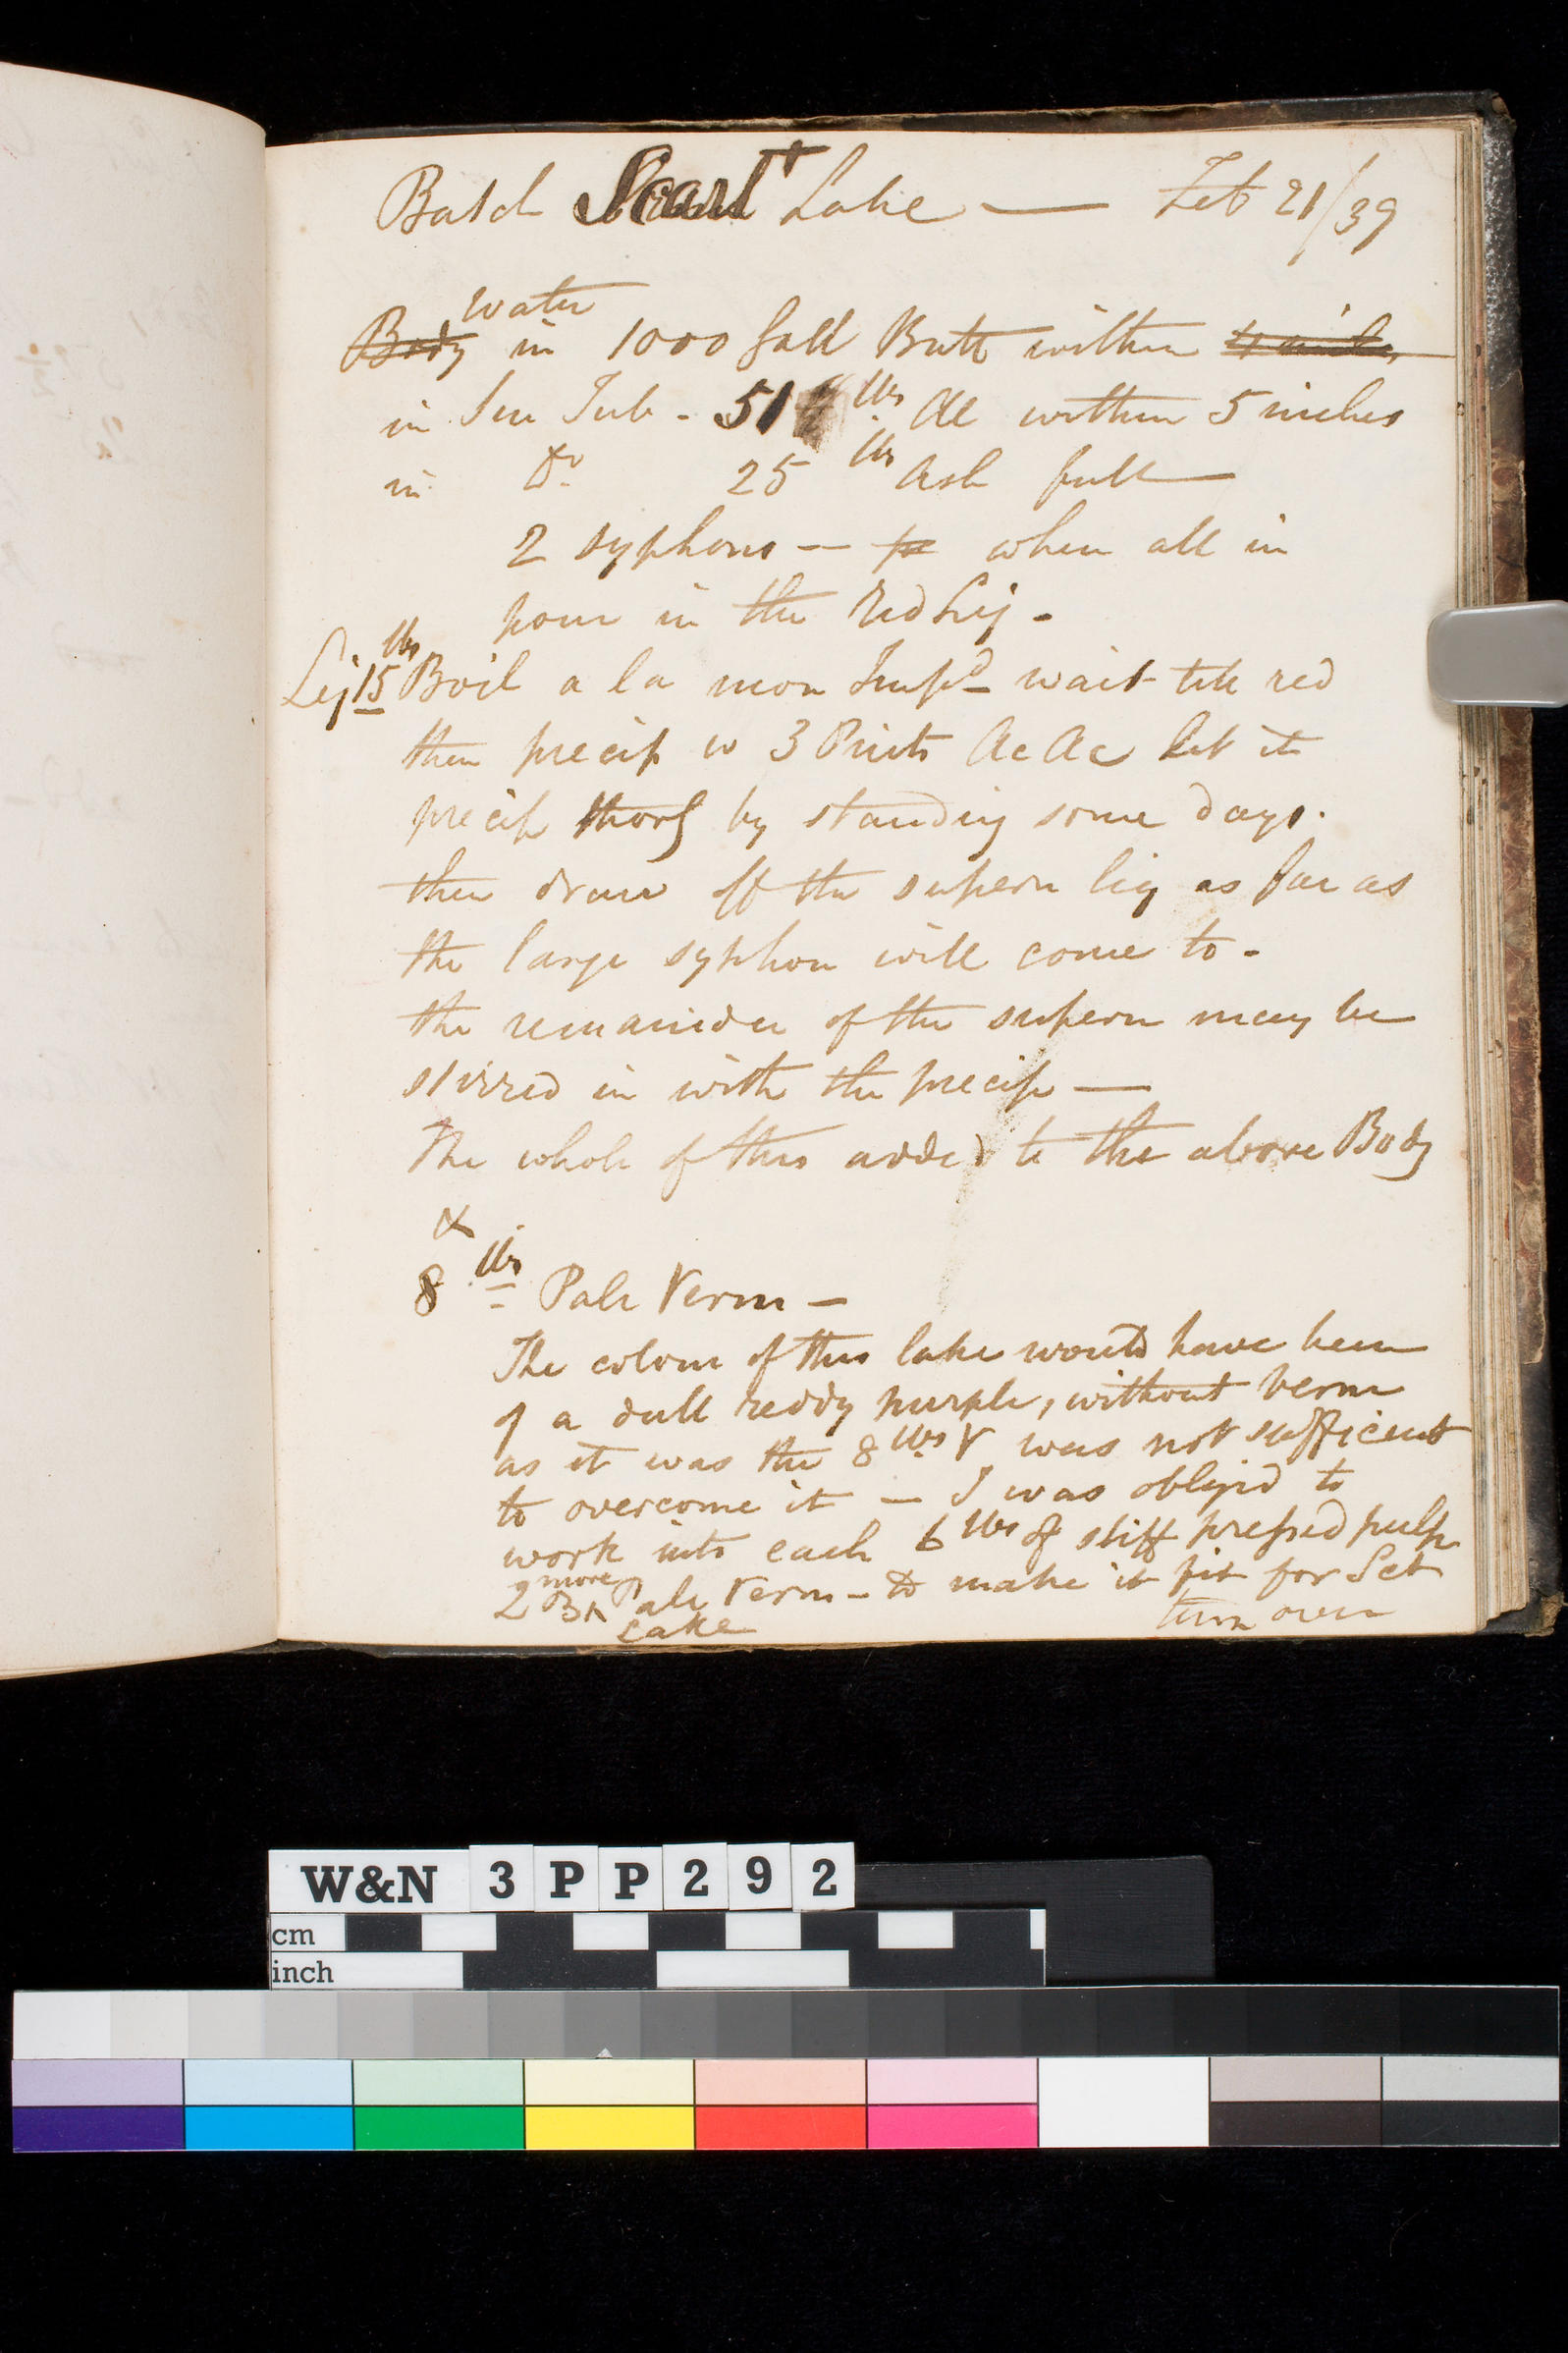 Batch Scarlt Lake — Feb 21/39
water
Body in 1000 Gall Butt within
in Sm Tub - 51 lbs Al within 5 inches
in Do 25 lbs Ash full
2 syphons — when all in
pour in the red Liq -
Liq 15 lbs Boil a la mon Impd wait till red
then precip w 3 Pints Ac Ac Let it
precip thorg by standing some days.
then draw off the supern liq as far as
the large syphon will come to -
the remainder of the supern may be
stirred in with the precip —
The whole of this added to the above Body
&
8 lbs Pale Verm -
The colour of this lake would have been
of a dull reddy purple, without verm
as it was the 8 lbs V was not sufficient
to overcome it — I was obliged to
work into each 6 lbs of stiff pressed pulp
2 more Pale Verm - to make it fit for Sct
Lake turn over
W&N 3PP292
cm
inch